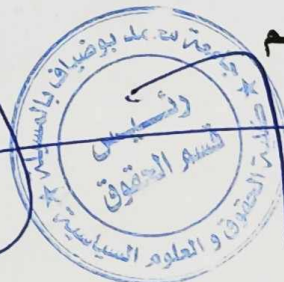 جامعة محمد بوضياف بالمسيلة
كلية الحقوق و العلوم السياسية
رئيس
قسم الحقوق